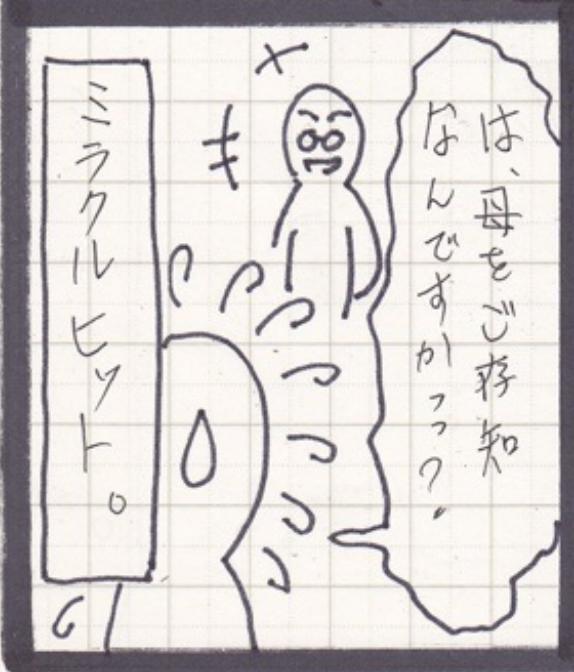 は、母をご存知
なんですかっっ?
ミラクルヒット。